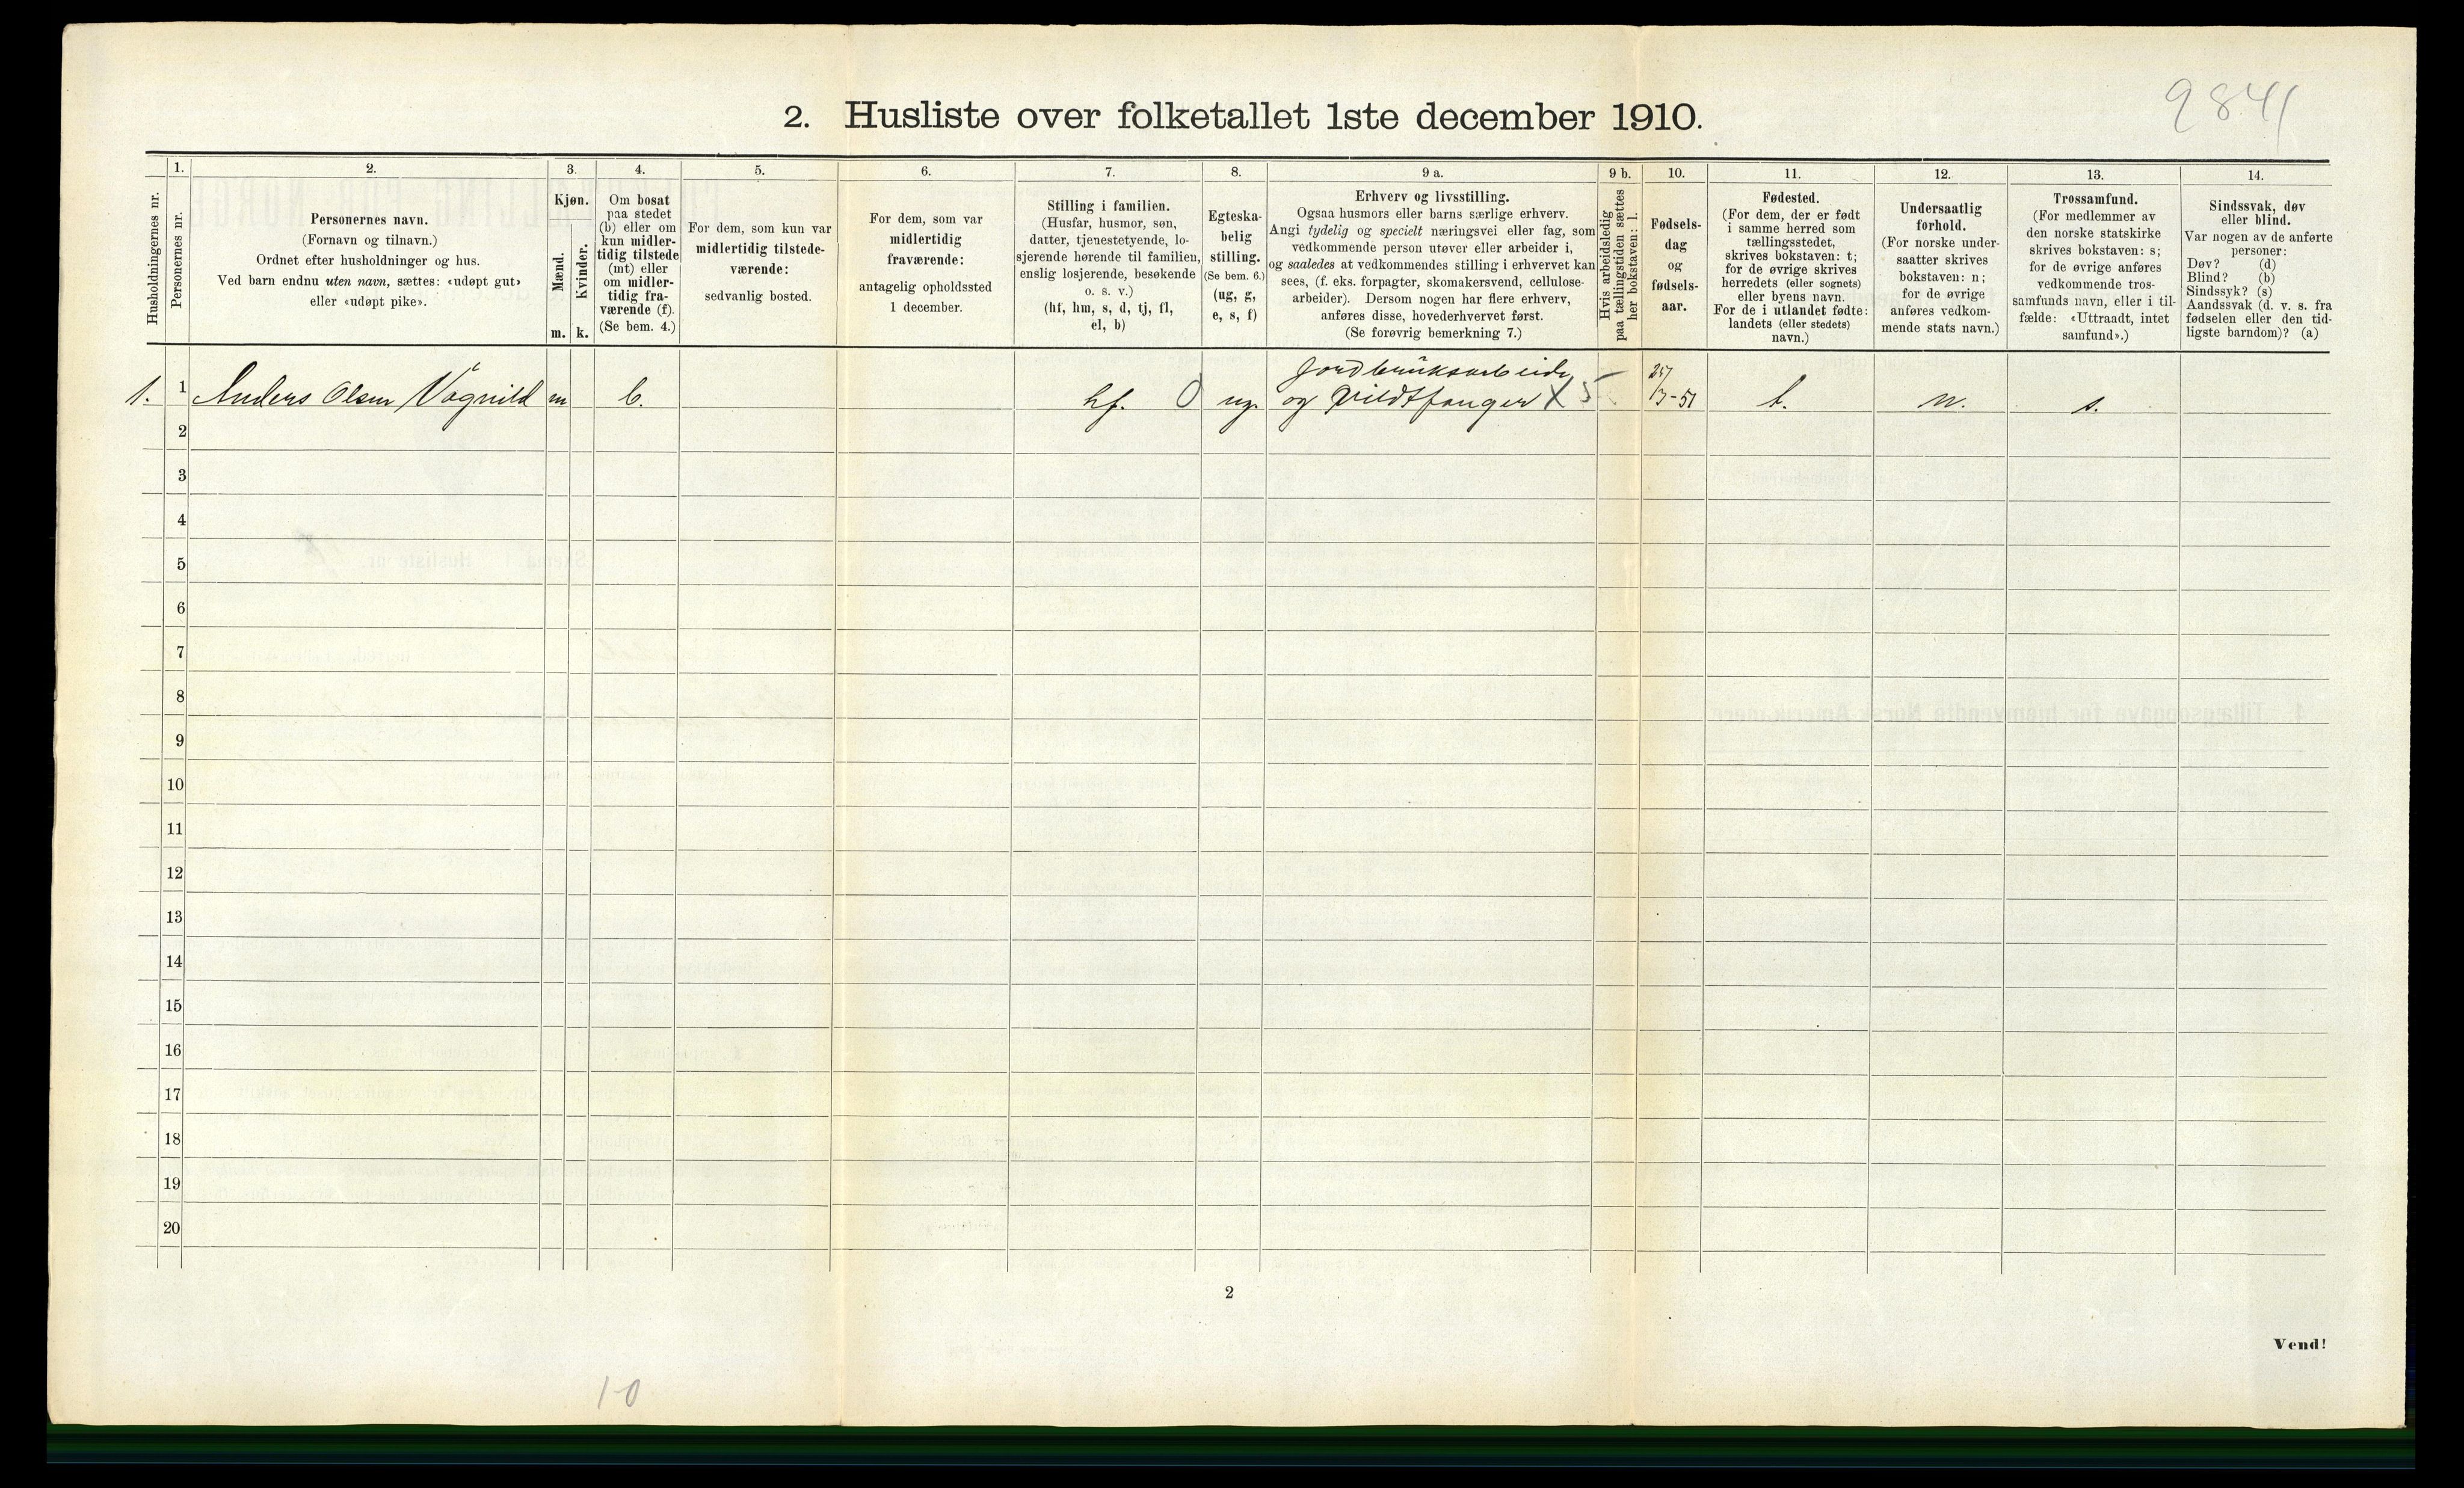 9841
2. Husliste over folketallet 1ste december 1910.
Husholdningernes nr.
1.
Personernes nr.
2.
Personernes navn.
(Fornavn og tilnavn.)
Ordnet efter husholdninger og hus.
Ved barn endnu uten navn, sættes: «udøpt gut»
eller «udøpt pike».
3.
Kjøn.
Mænd.
Kvinder.
m. k.
4.
Om bosat
paa stedet
(b) eller om
kun midler-
tidig tilstede
(mt) eller
om midler-
tidig fra-
værende (f).
(Se bem. 4.)
5.
For dem, som kun var
midlertidig tilstede-
værende:
sedvanlig bosted.
6.
For dem, som var
midlertidig
fraværende:
antagelig opholdssted
1 december.
7.
Stilling i familien.
(Husfar, husmor, søn,
datter, tjenestetyende, lo-
sjerende hørende til familien,
enslig losjerende, besøkende
o. s. v.)
(hf, hm, s, d, tj, fl,
el, b)
8.
Egteska-
belig
stilling.
(Se bem. 6.)
(ug, g,
e, s, f)
9 a.
Erhverv og livsstilling.
Ogsaa husmors eller barns særlige erhverv.
Angi tydelig og specielt næringsvei eller fag, som
vedkommende person utøver eller arbeider i,
og saaledes at vedkommendes stilling i erhvervet kan
sees, (f. eks. forpagter, skomakersvend, cellulose-
arbeider). Dersom nogen har flere erhverv,
anføres disse, hovederhvervet først.
(Se forøvrig bemerkning 7.)
9 b.
Hvis arbeidsledig
paa tællingstiden sættes
her bokstaven: l.
10.
Fødsels-
dag
og
fødsels-
aar.
11.
Fødested.
(For dem, der er født
i samme herred som
tællingsstedet,
skrives bokstaven: t;
for de øvrige skrives
herredets (eller sognets)
eller byens navn.
For de i utlandet fødte:
landets (eller stedets)
navn.)
12.
Undersaatlig
forhold.
(For norske under-
saatter skrives
bokstaven: n;
for de øvrige
anføres vedkom-
mende stats navn.)
13.
Trossamfund.
(For medlemmer av
den norske statskirke
skrives bokstaven: s;
for de øvrige anføres
vedkommende tros-
samfunds navn, eller i til-
fælde: «Uttraadt, intet
samfund».)
14.
Sindssvak, døv
eller blind.
Var nogen av de anførte
personer:
Døv? (d)
Blind? (b)
Sindssyk? (s)
Aandssvak (d. v. s. fra
fødselen eller den tid-
ligste barndom)? (a)
Jordbruksarbeide
1. 1 Anders Olsen Vågnild m b. hf. 0 ug. og Vildtfanger X 5 t. n. s.
2
3
4
5
6
7
8
9
10
11
12
13
14
15
16
17
18
19
20
2
Vend!
1-0